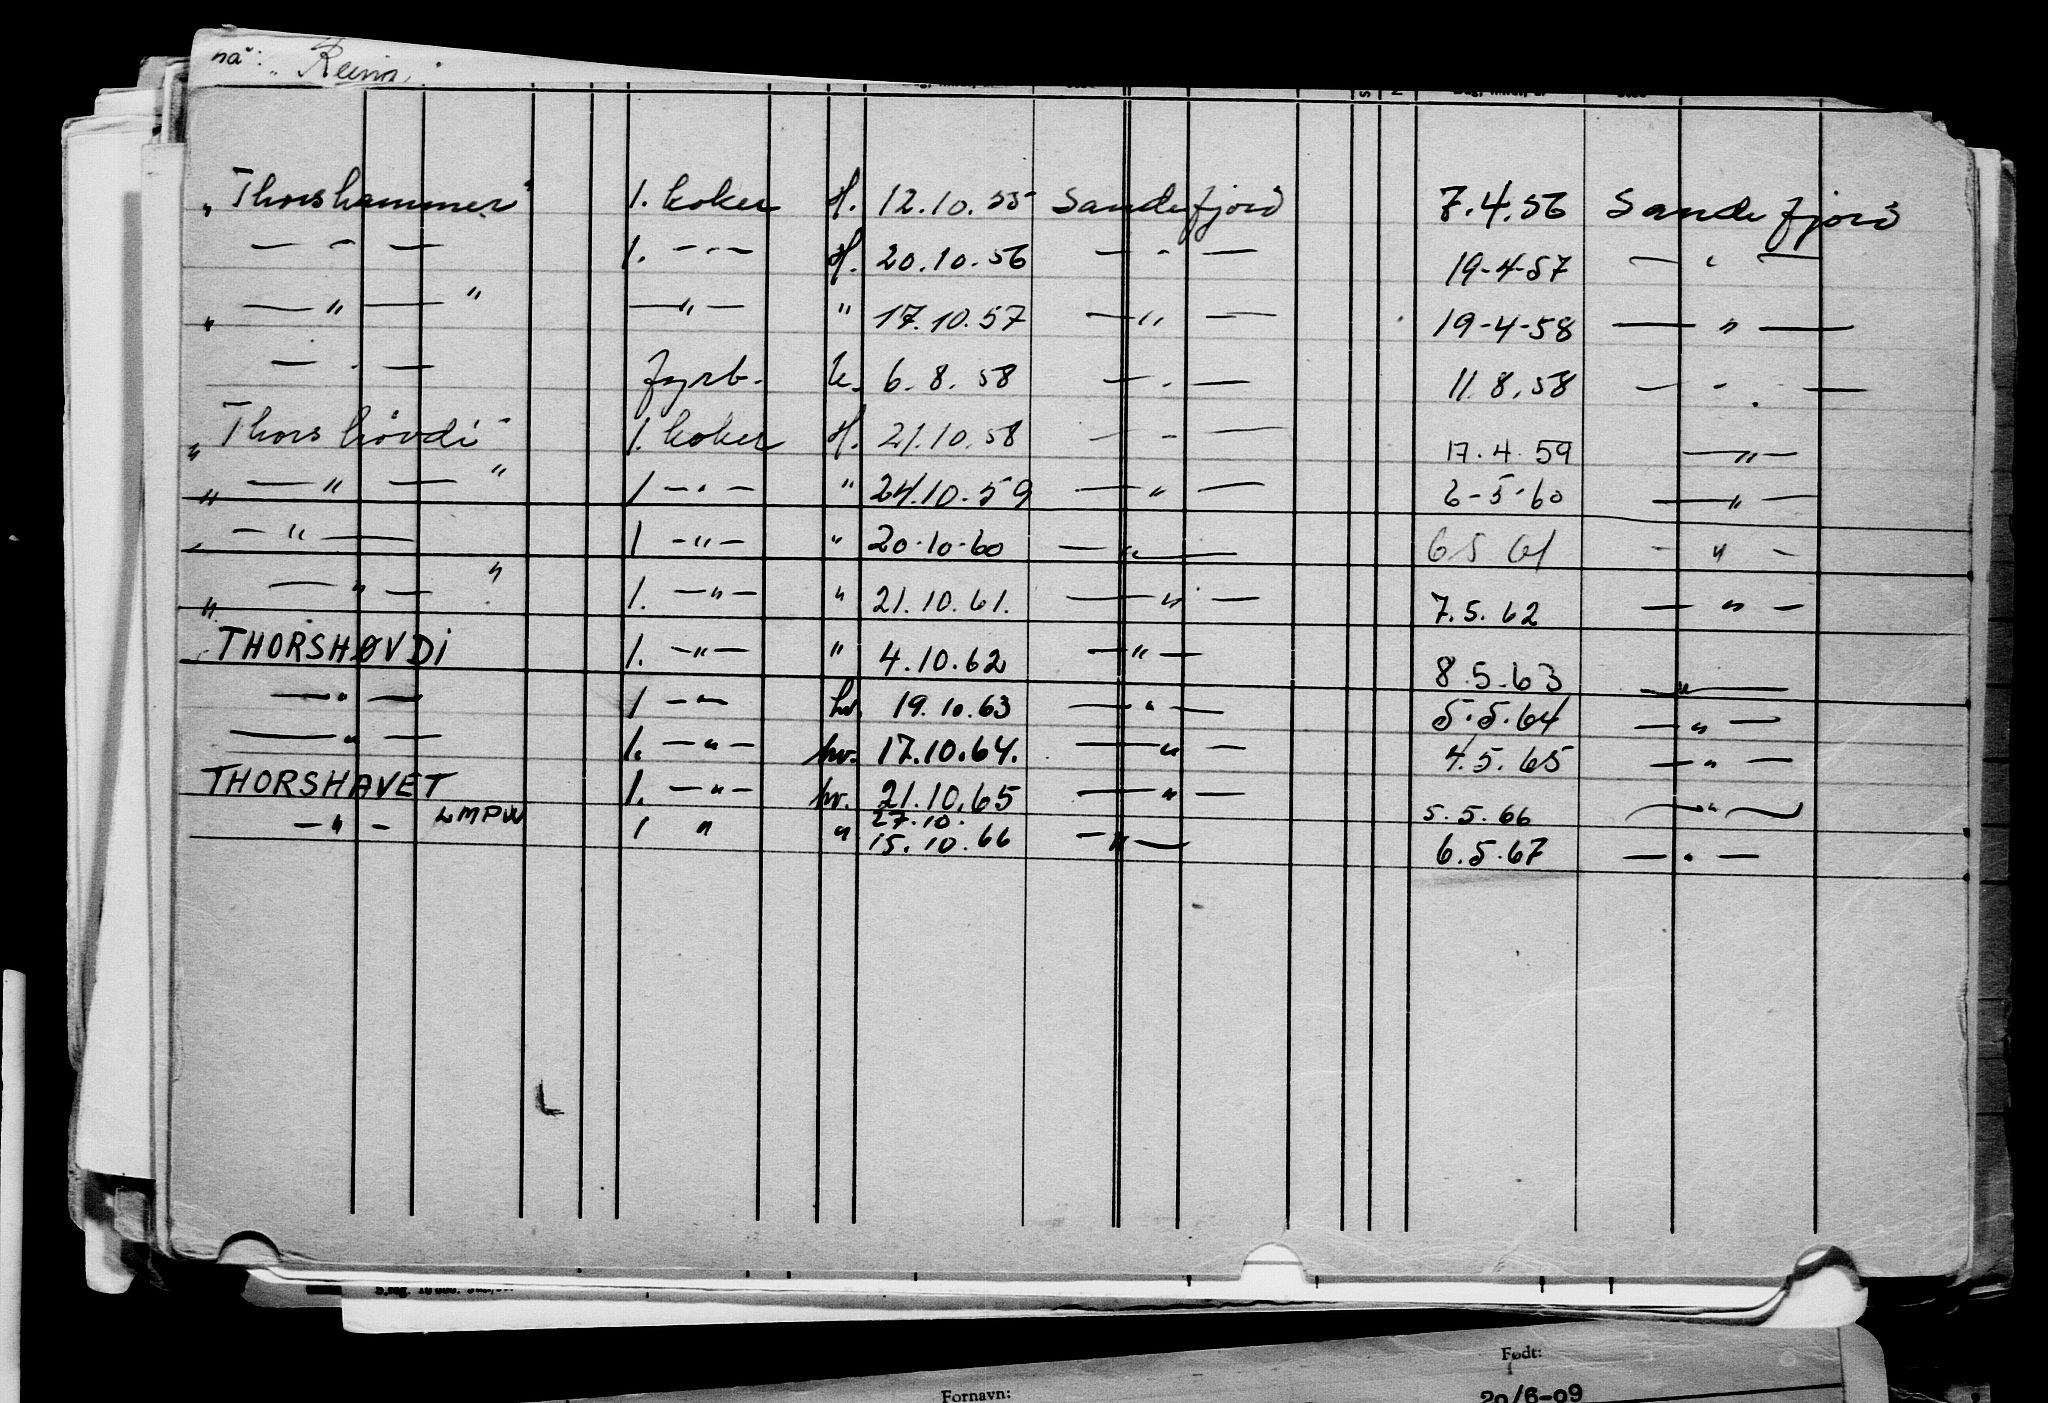 nå:
"Thorshammer" 1. koker H. 12.10.55 Sandefjord 7.4.56 Sandefjord
— " — 1. — " — H. 20.10.56 — " — 19-4-57 — " —
" — " — " — " — " 17.10.57 — " — 19-4-58 — " —
— " — fyrb. K. 6.8.58 — " — 11.8.58 — " —
"Thorshövdi" 1. koker H. 21.10.58 — " — 17.4.59 — " —
" — " — " 1 — " — " 24.10.59 — " — 6-5-60 — " —
— " — 1 — " — " 20-10-60 — " — 6 5 61 — " —
" — " — " 1. — " — " 21.10.61. — " — 7.5.62 — " —
THORSHØVDI 1. — " — " 4.10.62 — " — 8.5.63 — " —
— " — 1 — " — hv. 19.10.63 — " — 5.5.64 — " —
— " — 1. — " — hv. 17.10.64. — " — 4.5.65 — " —
THORSHAVET 1. — " — hv. 21.10.65 — " — 5.5.66 — " —
LMPW 27.10.
— " — 1 " " 15.10.66 — " — 6.5.67 — " —
Født:
Fornavn: 20/6-09